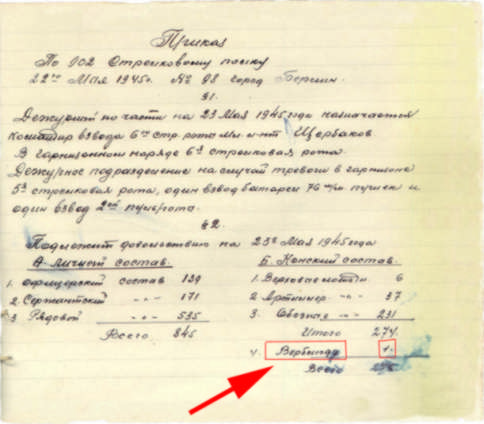 Приказ
По 102 Стрелковому полку
22го Мая 1945г. № 98 город Берлин.
§1.
Дежурный по части на 23 Мая 1945 года назначается
командир взвода 6ой стр. рота мл. л-нт Щербаков
В гарнизонном наряде 6я стрелковая рота.
Дежурное подразделение на случай тревоги в гарнизоне
5я стрелковая рота, один взвод батареи 76 м/м. пушек и
один взвод 2ой пуль/рота.
§2.
Подлежит довольствию на 23е Мая 1945 года
А. Личный состав.
1. Офицерский состав 139
2. Сержантский -"- 171
3 Рядовой -"- 535
Всего 845
Б. Конский состав.
1. Верховые 6
2. Артиллер. -"- 37
3. Обозная -"- 231
Итого 274.
4. Верблюдов 1.
Всего